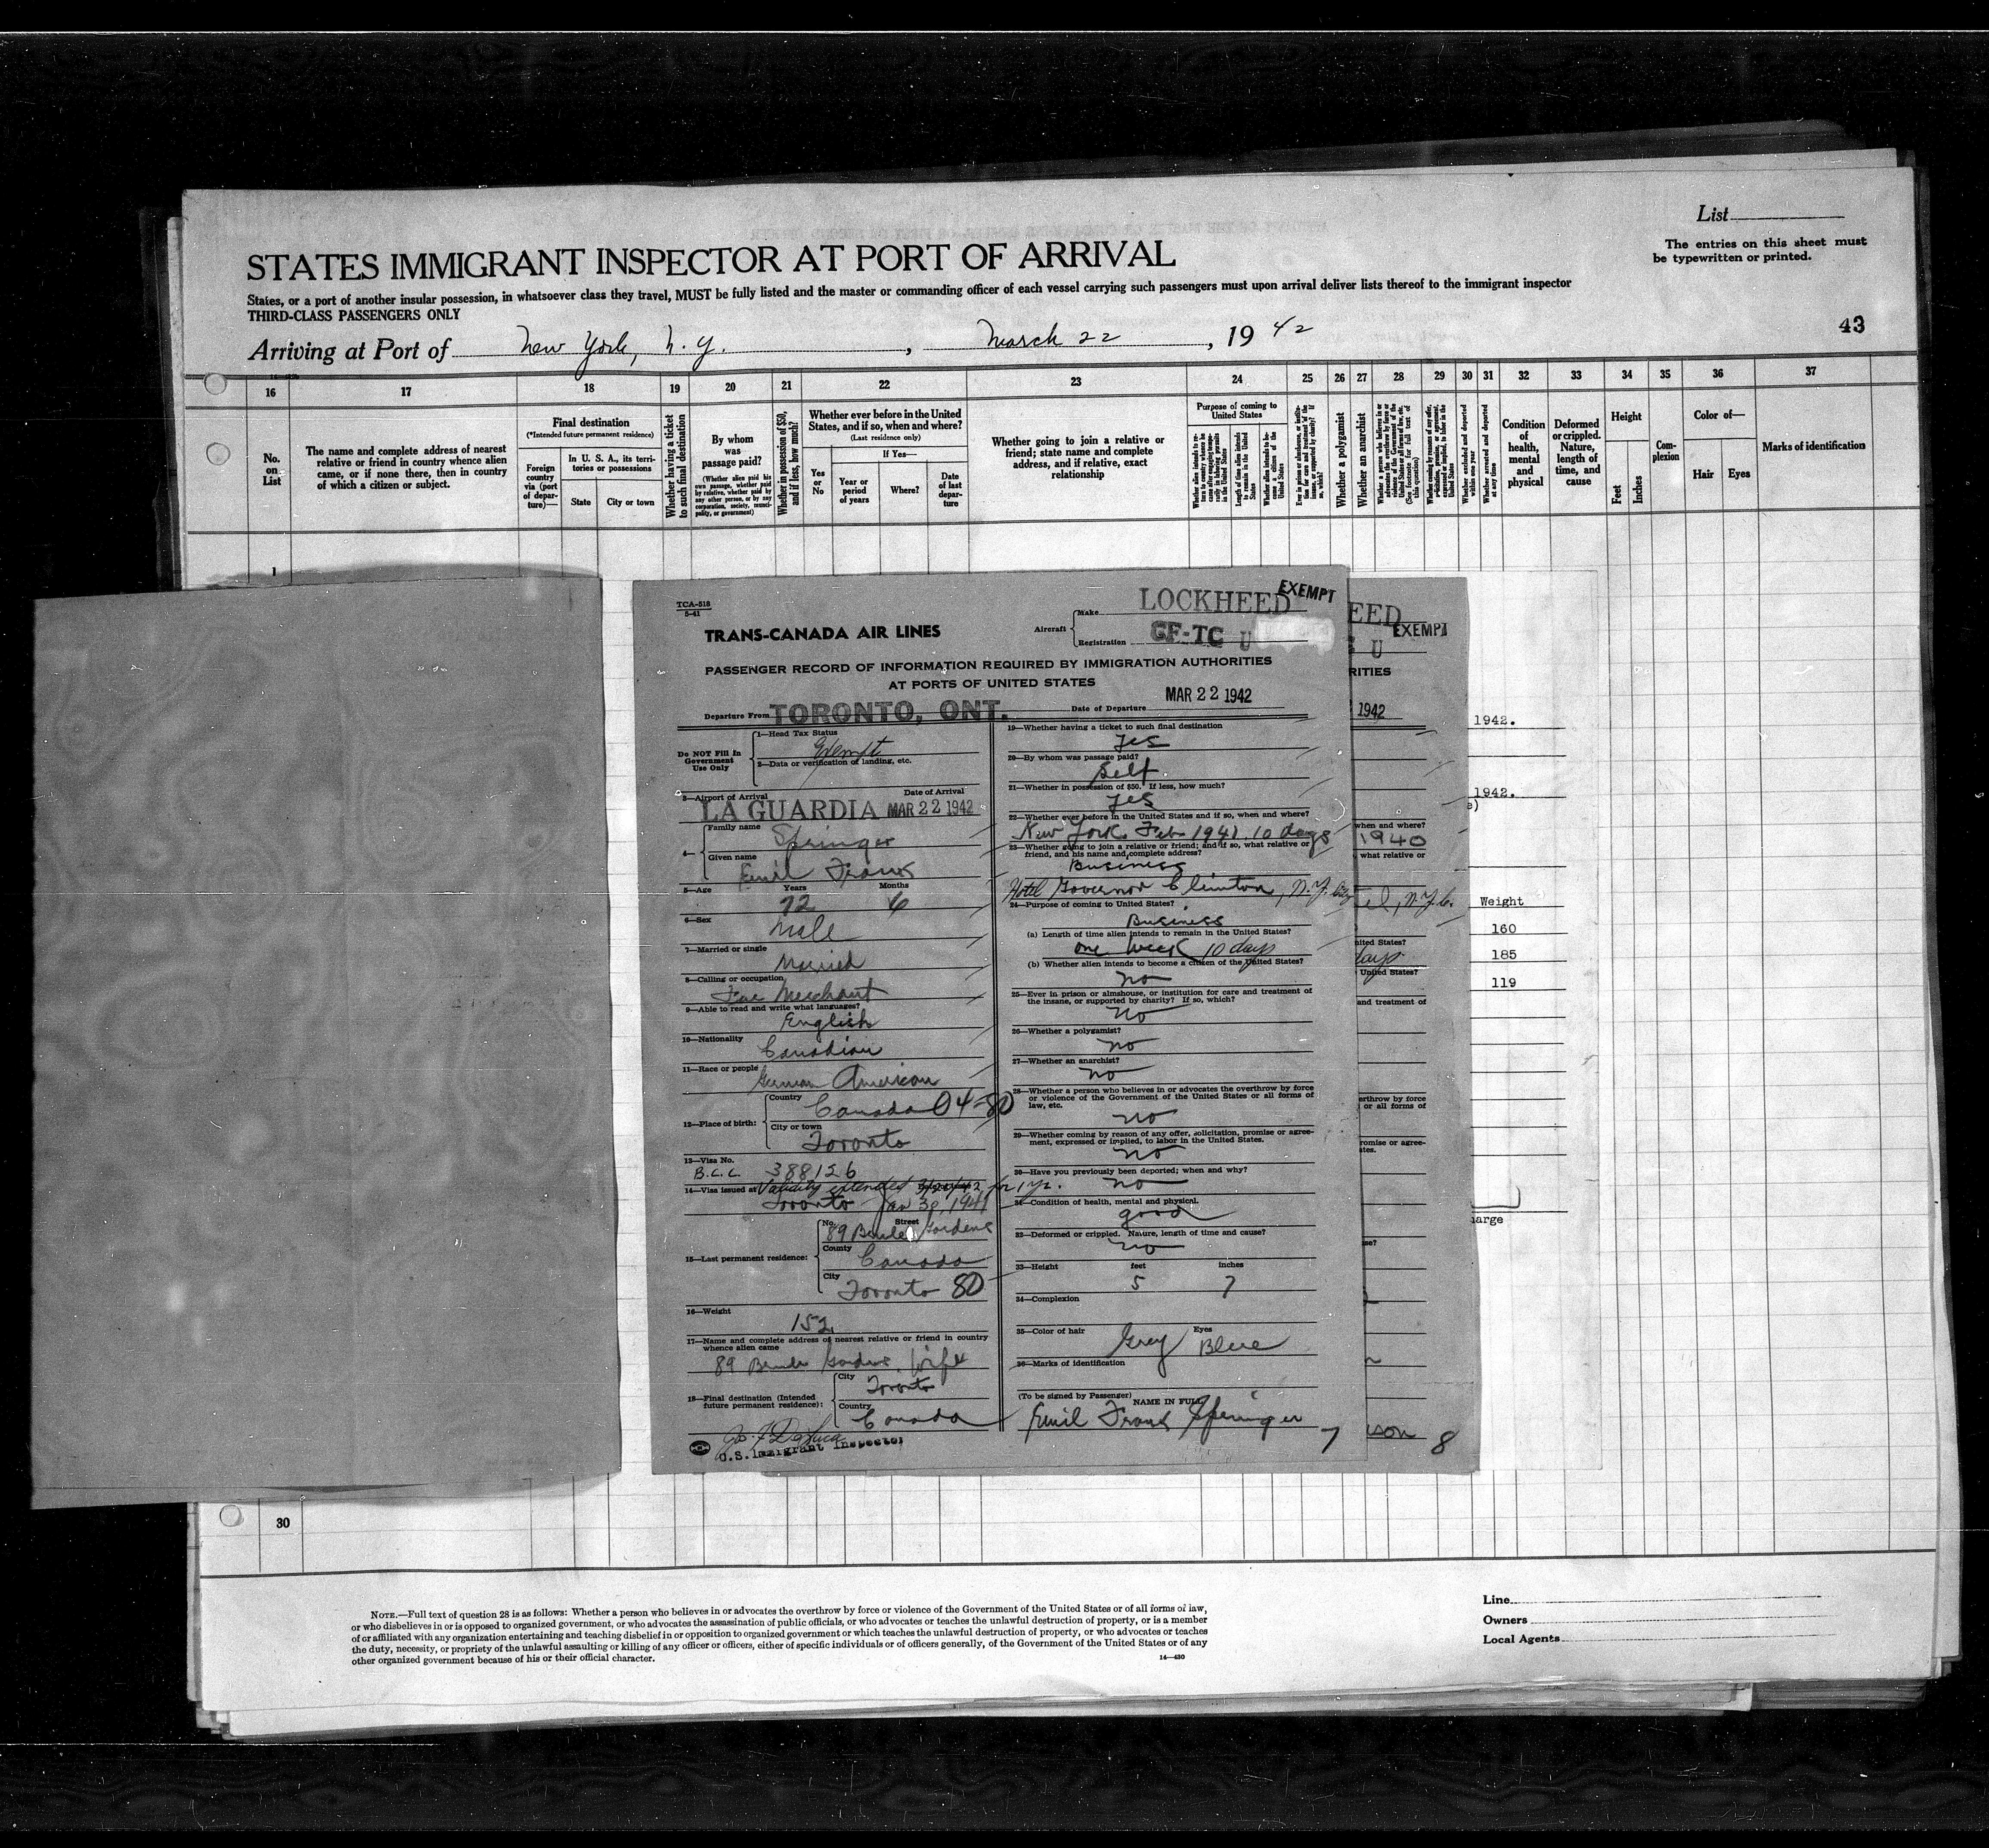 List
The entries on this sheet must
be typewritten or printed.
STATES IMMIGRANT INSPECTOR AT PORT OF ARRIVAL
States, or a port of another insular possession, in whatsoever class they travel, MUST be fully listed and the master or commanding officer of each vessel carrying such passengers must upon arrival deliver lists thereof to the immigrant inspector
THIRD-CLASS PASSENGERS ONLY
43
Arriving at Port of New York, N.Y., March 22, 1942
16 17 18 19 20 21 22 23 24 25 26 27 28 29 30 31 32 33 34 35 36 37
No. on List
The name and complete address of nearest
relative or friend in country whence alien
came, or if none there, then in country
of which a citizen or subject.
Final destination
(*Intended future permanent residence)
Foreign country via (port of departure)—
In U. S. A., its territories or possessions
State
City or town
Whether having a ticket to such final destination
By whom was passage paid?
(Whether alien paid his own passage, whether paid by relative, whether paid by any other person, or by any corporation, society, municipality, or government)
Whether in possession of $50, and if less, how much?
Whether ever before in the United
States, and if so, when and where?
(Last residence only)
Yes or No
If Yes—
Year or period of years
Where?
Date of last departure
Whether going to join a relative or
friend; state name and complete
address, and if relative, exact
relationship
Purpose of coming to United States
Length of time alien intends to remain in the United States
Whether alien intends to become a citizen of the United States
Whether a polygamist
Whether an anarchist
Whether excluded and deported within one year
Whether arrested and deported at any time
Condition of health, mental and physical
Deformed or crippled. Nature, length of time, and cause
Height
Feet
Inches
Complexion
Color of—
Hair
Eyes
Marks of identification
1
TCA-518
5-41
TRANS-CANADA AIR LINES
Aircraft
Make LOCKHEED
EXEMPT
Registration CF-TC U
PASSENGER RECORD OF INFORMATION REQUIRED BY IMMIGRATION AUTHORITIES
AT PORTS OF UNITED STATES
Departure From TORONTO, ONT.
Date of Departure MAR 22 1942
Do NOT Fill In
Government
Use Only
1—Head Tax Status
Exempt
2—Data or verification of landing, etc.
3—Airport of Arrival
Date of Arrival
LA GUARDIA MAR 22 1942
4—
Family name
Springer
Given name
Emil Frank
5—Age
Years
Months
72 6
6—Sex
Male
7—Married or single
Married
8—Calling or occupation
Fur Merchant
9—Able to read and write what languages?
English
10—Nationality
Canadian
11—Race or people
German American
12—Place of birth:
Country
Canada 04-80
City or town
Toronto
13—Visa No.
B.C.C. 388126
14—Visa issued at Validity extended 3/20/42 for 1 yr.
Toronto Jan 30, 1941
15—Last permanent residence:
No. Street
89 Gardens
County
Canada
City
Toronto 80
16—Weight
152
17—Name and complete address of nearest relative or friend in country
whence alien came
89 Gardens. Wife
18—Final destination (Intended
future permanent residence):
City
Toronto
Country
Canada
U.S. Immigrant Inspector
19—Whether having a ticket to such final destination
Yes
20—By whom was passage paid?
Self
21—Whether in possession of $50. If less, how much?
Yes
22—Whether ever before in the United States and if so, when and where?
New York. Feb 1941. 10 days
23—Whether going to join a relative or friend; and if so, what relative or
friend, and his name and complete address?
Business
Hotel Governor Clinton, N.Y. City
24—Purpose of coming to United States?
Business
(a) Length of time alien intends to remain in the United States?
one week 10 days
(b) Whether alien intends to become a citizen of the United States?
no
25—Ever in prison or almshouse, or institution for care and treatment of
the insane, or supported by charity? If so, which?
no
26—Whether a polygamist?
no
27—Whether an anarchist?
no
28—Whether a person who believes in or advocates the overthrow by force
or violence of the Government of the United States or all forms of
law, etc.
no
29—Whether coming by reason of any offer, solicitation, promise or agree-
ment, expressed or implied, to labor in the United States.
no
30—Have you previously been deported; when and why?
no
31—Condition of health, mental and physical.
good
32—Deformed or crippled. Nature, length of time and cause?
no
33—Height
feet
inches
5 7
34—Complexion
35—Color of hair
Eyes
Grey Blue
36—Marks of identification
(To be signed by Passenger)
NAME IN FULL
Emil Frank Springer
7
EED
EXEMPT
U
RITIES
1942
when and where?
1940
what relative or
el, N.Y.C.
nited States?
days
United States?
and treatment of
erthrow by force
or all forms of
romise or agree-
tes.
se?
son 8
1942.
1942.
e)
Weight
160
185
119
harge
30
NOTE.—Full text of question 28 is as follows: Whether a person who believes in or advocates the overthrow by force or violence of the Government of the United States or of all forms of law,
or who disbelieves in or is opposed to organized government, or who advocates the assassination of public officials, or who advocates or teaches the unlawful destruction of property, or is a member
of or affiliated with any organization entertaining and teaching disbelief in or opposition to organized government or which teaches the unlawful destruction of property, or who advocates or teaches
the duty, necessity, or propriety of the unlawful assaulting or killing of any officer or officers, either of specific individuals or of officers generally, of the Government of the United States or of any
other organized government because of his or their official character.
14—430
Line
Owners
Local Agents